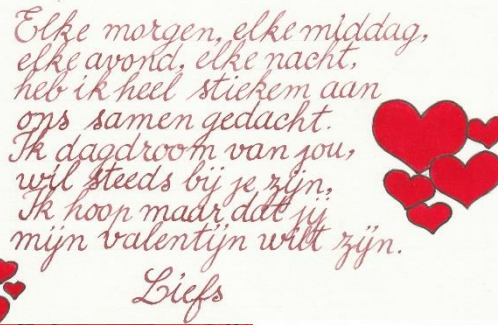 Elke morgen, elke middag,
elke avond, elke nacht,
heb ik heel stiekem aan
ons samen gedacht.
Ik dagdroom van jou,
wil steeds bij je zijn,
Ik hoop maar dat jij
mijn valentijn wilt zijn.
Liefs